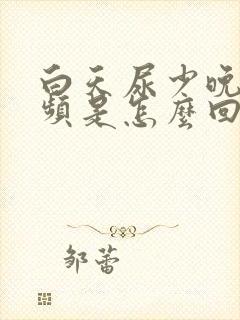 白天尿少晚
頻是怎麼回
邹蕾